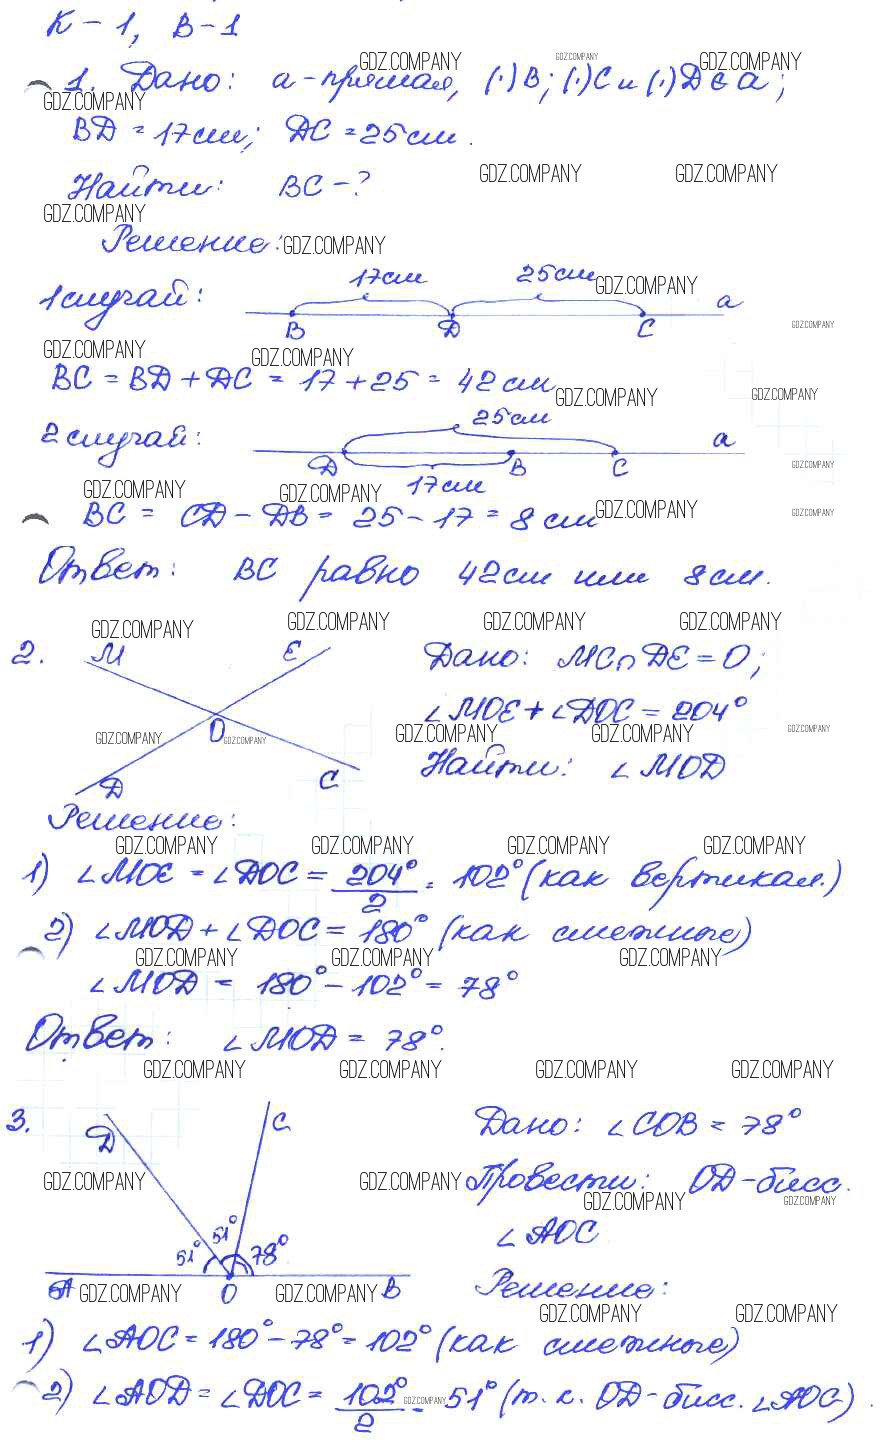 К – 1, В – 1
1. Дано: а – прямая, (·)В; (·)С и (·)D ∈ а;
BD = 17см; DC = 25см.
Найти: BC – ?
Решение:
1 случай: 17см 25см а
B D C
BC = BD + DC = 17 + 25 = 42 см
2 случай: 25см а
D B C
17см
BC = CD – DB = 25 – 17 = 8 см
Ответ: BC равно 42см или 8см.
2. M E Дано: MC ∩ DE = O;
∠MOE + ∠DOC = 204°
O
D C Найти: ∠MOD
Решение:
1) ∠MOE = ∠DOC = 204°/2 = 102° (как вертикал.)
2) ∠MOD + ∠DOC = 180° (как смежные)
∠MOD = 180° – 102° = 78°
Ответ: ∠MOD = 78°.
3. D C Дано: ∠COB = 78°
Провести: OD – бисс.
∠AOC
51° 51° 78°
A O B Решение:
1) ∠AOC = 180° – 78° = 102° (как смежные)
2) ∠AOD = ∠DOC = 102°/2 = 51° (т.к. OD – бисс. ∠AOC).
GDZ.COMPANY